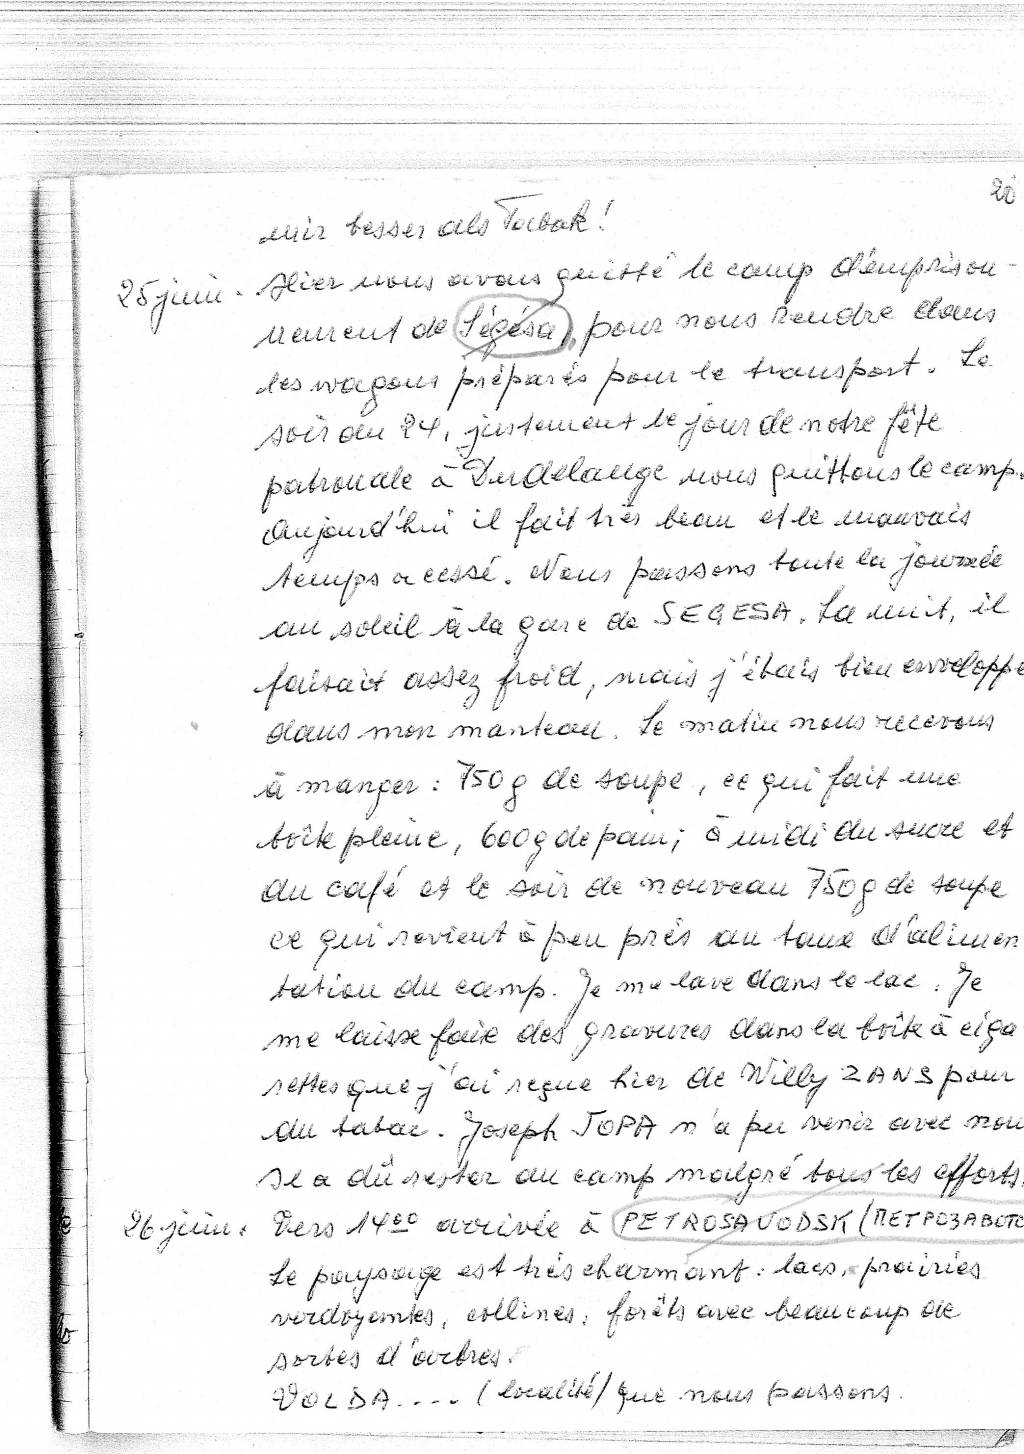 20
mir besser als Tabak!
25 juin. Hier nous avons quitté le camp d'emprison-
nement de Ségésa, pour nous rendre dans
les wagons préparés pour le transport. Le
soir du 24, justement le jour de notre fête
patronale à Dudelange nous quittons le camp.
Aujourd'hui il fait très beau et le mauvais
temps a cessé. Nous passons toute la journée
au soleil à la gare de SEGESA. La nuit, il
faisait assez froid, mais j'étais bien enveloppé
dans mon manteau. Le matin nous recevons
à manger : 750g de soupe, ce qui fait une
boîte pleine, 600g de pain; à midi du sucre et
du café et le soir de nouveau 750g de soupe
ce qui revient à peu près au taux d'alimen
tation du camp. Je me lave dans le lac. Je
me laisse faire des gravures dans la boîte à ciga
rettes que j'ai reçue hier de Willy ZANS pour
du tabac. Joseph TOPA n'a pu venir avec nou
Il a dû rester au camp malgré tous les efforts.
26 juin. Vers 14⁰⁰ arrivée à PETROSAVODSK (ПЕТРОЗАВОТС
Le paysage est très charmant : lacs, prairies
verdoyantes, collines, forêts avec beaucoup de
sortes d'arbres.
VOLDA .... (localité) que nous passons.